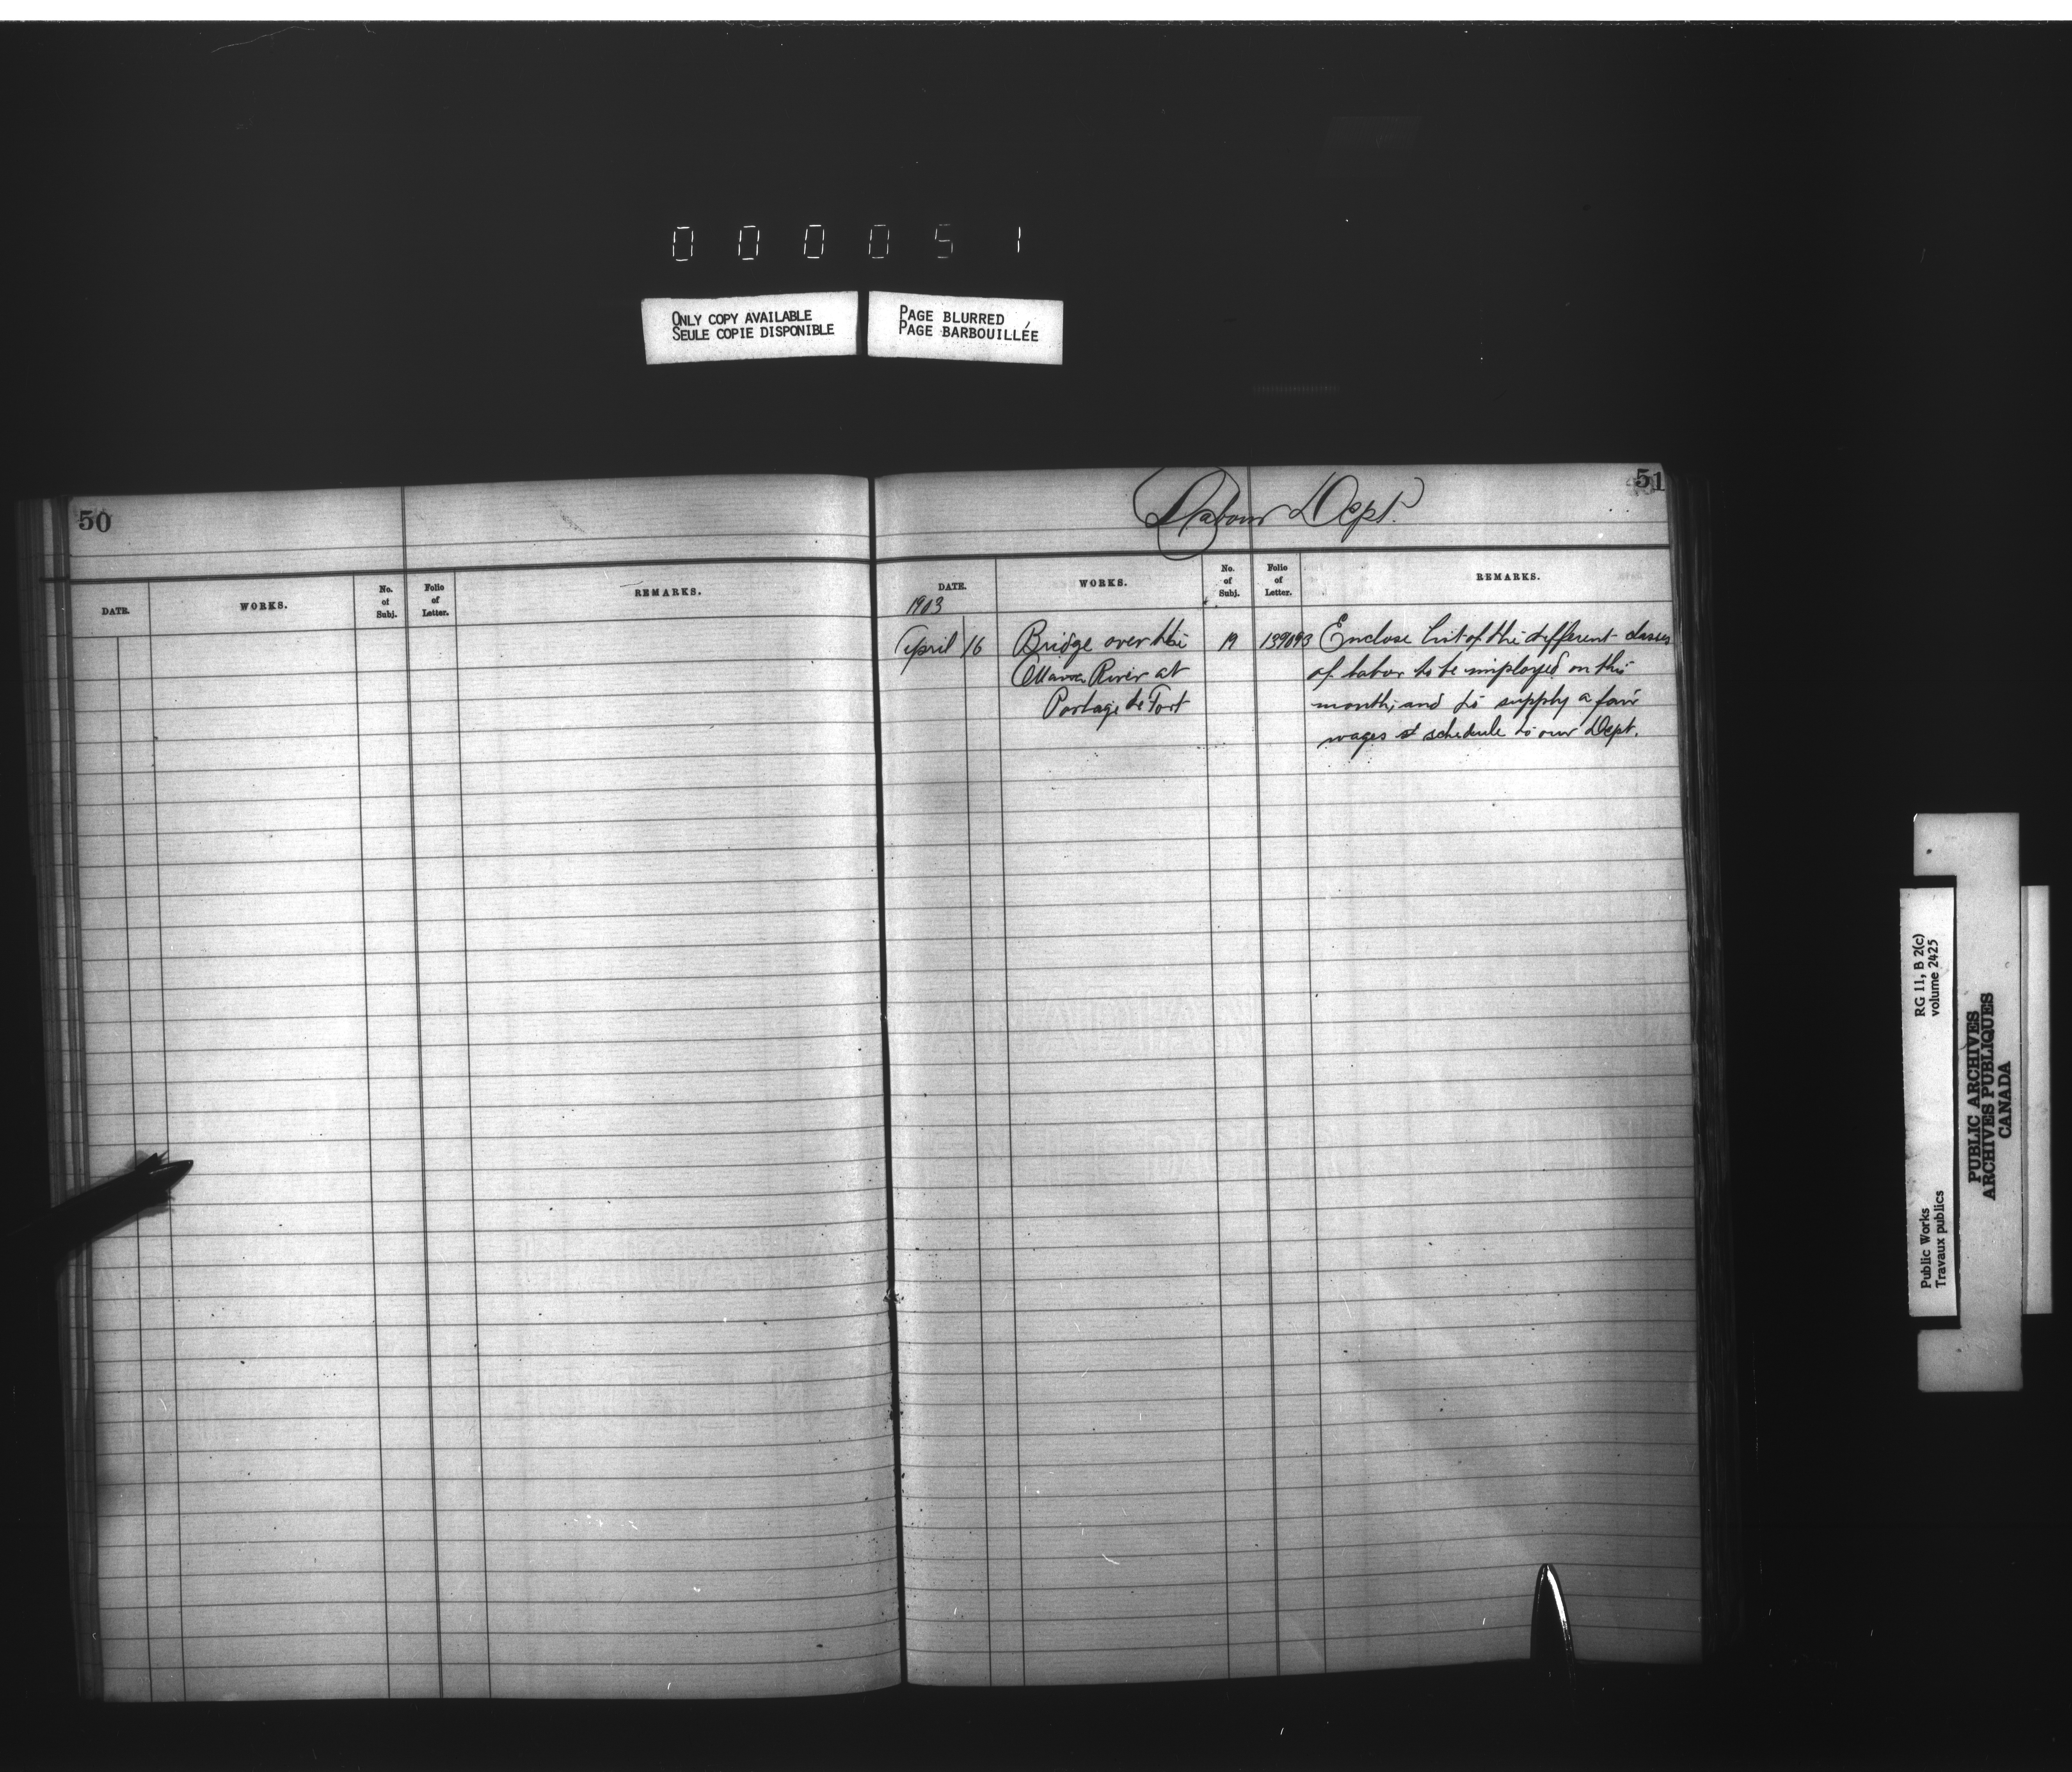 0 0 0 0 5 1
ONLY COPY AVAILABLE
SEULE COPIE DISPONIBLE
PAGE BLURRED
PAGE BARBOUILLÉE
50
DATE.
WORKS.
No. of Subj.
Folio of Letter.
REMARKS.
Labour Dept.
51
DATE.
WORKS.
No. of Subj.
Folio of Letter.
REMARKS.
1903
April 16 Bridge over the 19 139093 Enclose list of the different classes
Ottawa River at of labor to be employed on this
Portage de Fort month, and to supply a fair
wages st schedule to our Dept.
RG 11, B 2(c)
volume 2425
Public Works
Travaux publics
PUBLIC ARCHIVES
ARCHIVES PUBLIQUES
CANADA